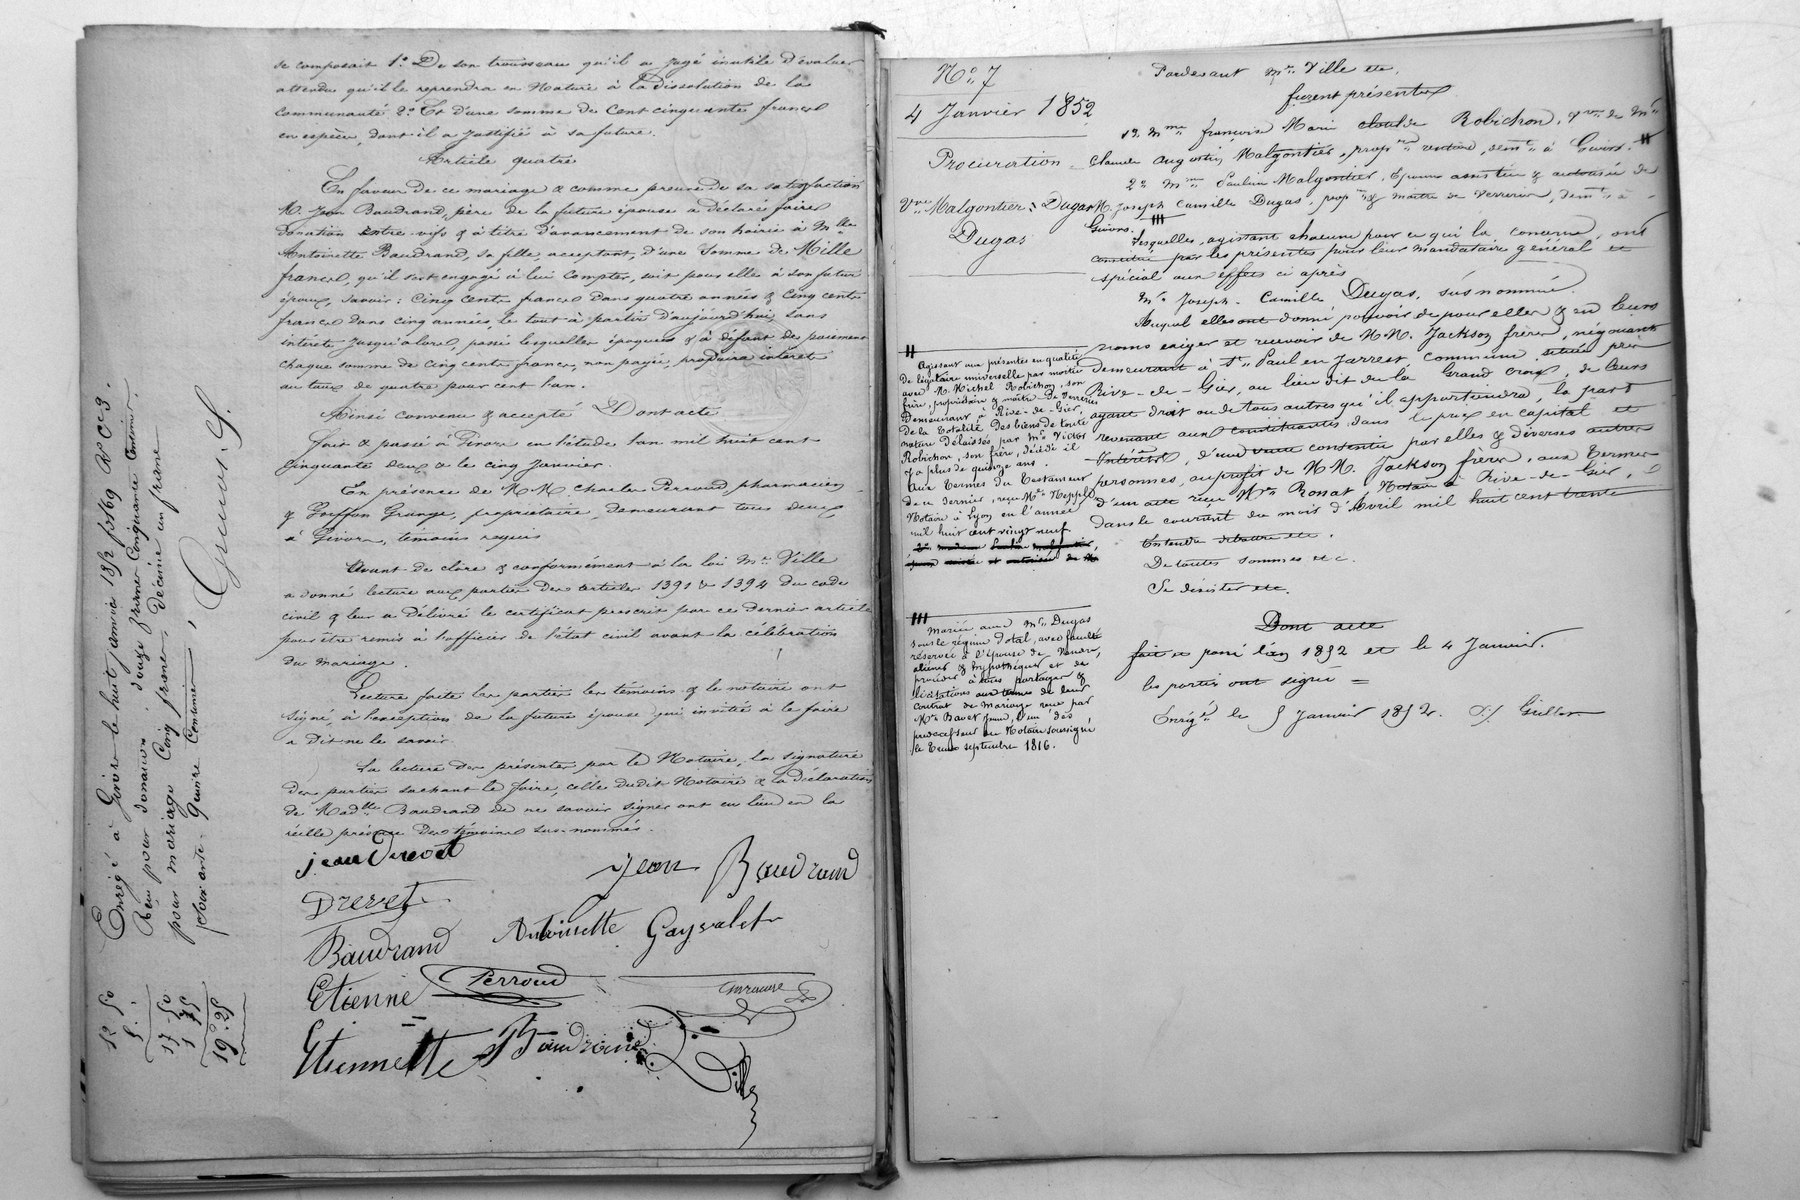 se composait 1º De son trousseau qu'il a jugé inutile d'évaluer
attendu qu'il le reprendra en Nature à la Dissolution de la
communauté 2º Et d'une somme de Cent cinquante francs
en espèces, dont il a justifié à sa future.
Article quatre
En faveur de ce mariage & comme preuve de sa satisfaction
M. Jean Baudrand, père de la future épouse a déclaré faire
donation entre-vifs & à titre d'avancement de son hoirie à Mlle
Antoinette Baudrand, sa fille, acceptant, d'une Somme de Mille
francs, qu'il s'est engagé à lui compter, soit pour elle à son futur
époux, savoir : Cinq cents francs Dans quatre années & Cinq cents
francs dans cinq années, le tout à partir d'aujourd'hui sans
intérêt jusqu'alors, passé lesquelles époques & à défaut de paiement
chaque somme de cinq cents francs, non payée, produira intérêt
au taux de quatre pour cent l'an.
Ainsi convenu & accepté Dont acte
Fait & passé à Givors en l'étude l'an mil huit cent
cinquante deux & le cinq Janvier.
En présence de MM. Charles Perroud, pharmacien
& Grange, propriétaire, demeurant tous deux
à Givors, témoins requis
Avant de clore & conformément à la loi Me Ville
a donné lecture aux parties des articles 1391 & 1394 du code
civil & leur a délivré le certificat prescrit par ce dernier article
pour être remis à l'officier de l'état civil avant la célébration
du mariage.
Lecture faite les parties les témoins & le notaire ont
signé, à l'exception de la future épouse qui invitée à le faire
a dit ne le savoir.
La lecture des présentes par le Notaire, la signature
des parties sachant le faire, celle dudit Notaire & la déclaration
de Madlle Baudrand de ne savoir signer ont eu lieu en la
réelle présence des témoins sus-nommés.
jean Drevet
Jean Baudrand
Drevet
Antoinette
Baudrand
Etienne
Perroud
Etiennette Baudrand
Ville
Enregé à Givors le huit janvier 1852 fo 69
Reçu pour donation douze francs Cinquante Centimes
pour mariage Cinq francs, décime un franc
soixante quinze Centimes,
12 50
5 .
17 50
1 75
19 25
No 7
4 Janvier 1852
Procuration
Vve Malgontier & Dugas
Dugas
Pardevant Me Ville etc.
furent présentes
1º Mme françoise Marie Robichon, Vve de Mr
Claude Augustin Malgontier, propre rentière, demt à Givors. II
2º Mme Pauline Malgontier, Epouse assistée & autorisée de
M. Joseph Camille Dugas, propre & maître de Verrerie, demt à
Givors. III
Lesquelles, agissant chacune pour ce qui la concerne, ont
constitué par les présentes pour leur mandataire général et
spécial aux effets ci après
Mr Joseph-Camille Dugas, susnommé.
Auquel elles ont donné pouvoir de pour elles & en leurs
noms exiger et recevoir de MM. Jackson frères, négociants
demeurant à St Paul en Jarrest, commune située près
Rive-de-Gier, au lieu dit de la Grand Croix, de leurs
ayant droit ou de tous autres qu'il appartiendra, la part
revenant aux constituantes, dans le prix en capital et
Intérêts, d'une vente consentie par elles & diverses autres
personnes, au profit de MM. Jackson frères, aux termes
d'un acte reçu Me Ronat Notaire à Rive-de-Gier,
dans le courant du mois d'Avril mil huit cent trente
Entendre débattre etc.
De toutes sommes etc.
Se désister etc.
Dont acte
fait et passé l'an 1852 et le 4 Janvier.
les parties ont signé =
Enregé le 5 Janvier 1852.
II
Agissant aux présentes en qualité
De légataire universelle par moitié
avec M. Michel Robichon, son
frère, propriétaire & maître de Verrerie
Demeurant à Rive-de-Gier,
De la totalité des biens de toute
nature délaissés par Mr Victor
Robichon, son frère, décédé il
y a plus de quinze ans.
Aux termes du Testament
de ce dernier, reçu Me
Notaire à Lyon en l'année
mil huit cent vingt neuf.
III
Mariée avec Mr Dugas
sous le régime Dotal, avec faculté
réservée à l'épouse de Vendre,
aliéner & hypothéquer et de
procéder à tous partages &
licitations aux termes de leur
contrat de mariage reçu par
Me l'un des
prédécesseurs du Notaire soussigné
le septembre 1816.